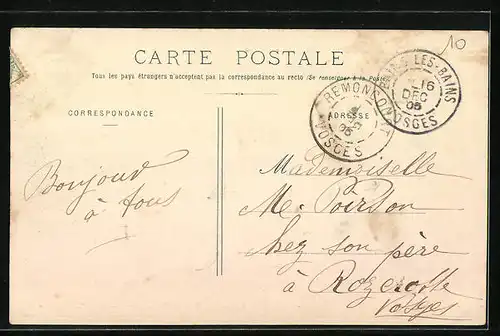 10
CARTE POSTALE
Tous les pays étrangers n'acceptent pas la correspondance au recto (Se renseigner à la Poste)
CORRESPONDANCE
ADRESSE
REMONCOURT
VOSGES
LES-BAINS
16
DEC
05
VOSGES
Bonjour
à tous
Mademoiselle
M. Poirson
chez son père
à Rozerotte
Vosges